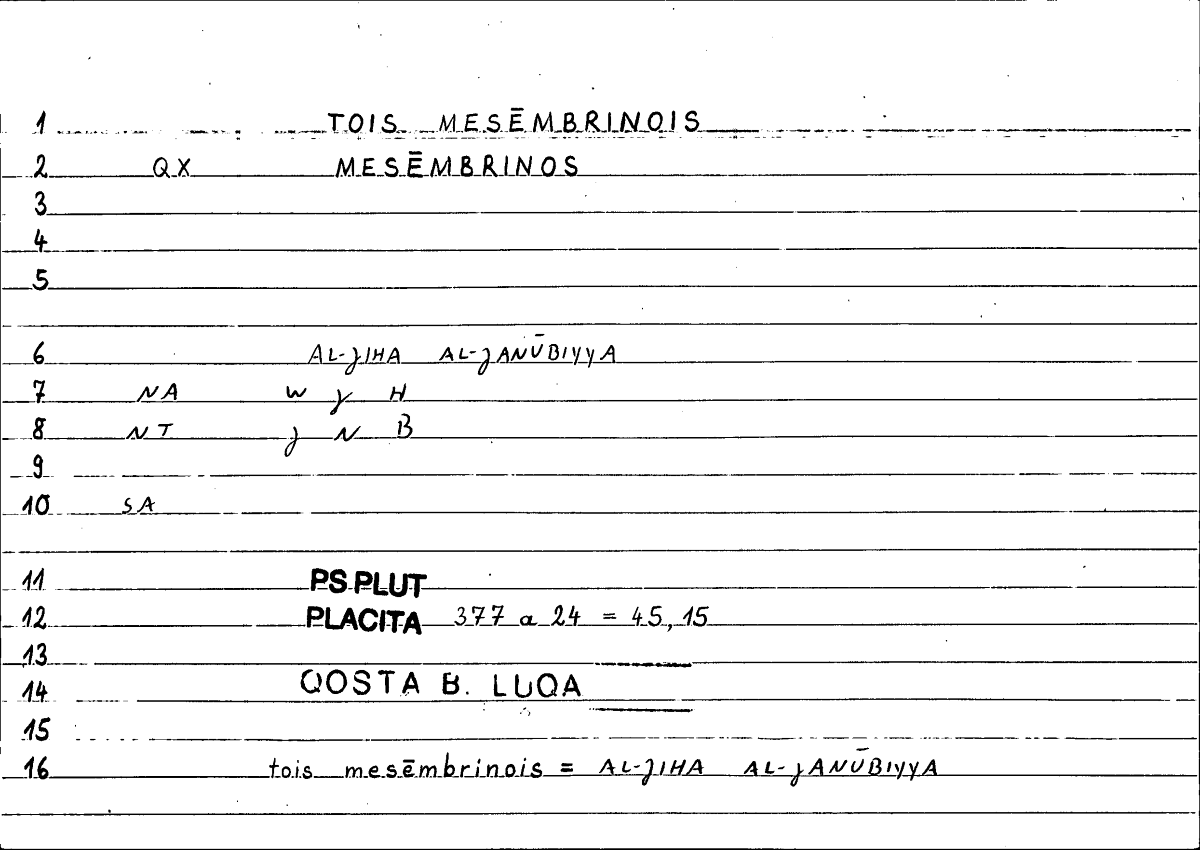 1 TOIS MESĒMBRINOIS
2 QX MESĒMBRINOS
3
4
5
6 AL-JIHA AL-JANŪBIYYA
7 NA W J H
8 NT J N B
9
10 SA
11 PS.PLUT
12 PLACITA 377 a 24 = 45,15
13
14 QOSTA B. LUQA
15
16 tois mesēmbrinois = AL-JIHA AL-JANŪBIYYA